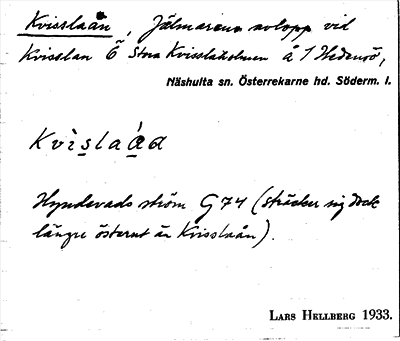 Kvisslaån, Jälmarens avlopp vid
Kvisslan Ö Stora Kvisslaholmen å 1 Hedensö,
Näshulta sn. Österrekarne hd. Söderm. l.
Kvìsla̋ɑ
Hyndevads ström G 74 (sträcker sig dock
längre österut än Kvisslaån).
LARS HELLBERG 1933.